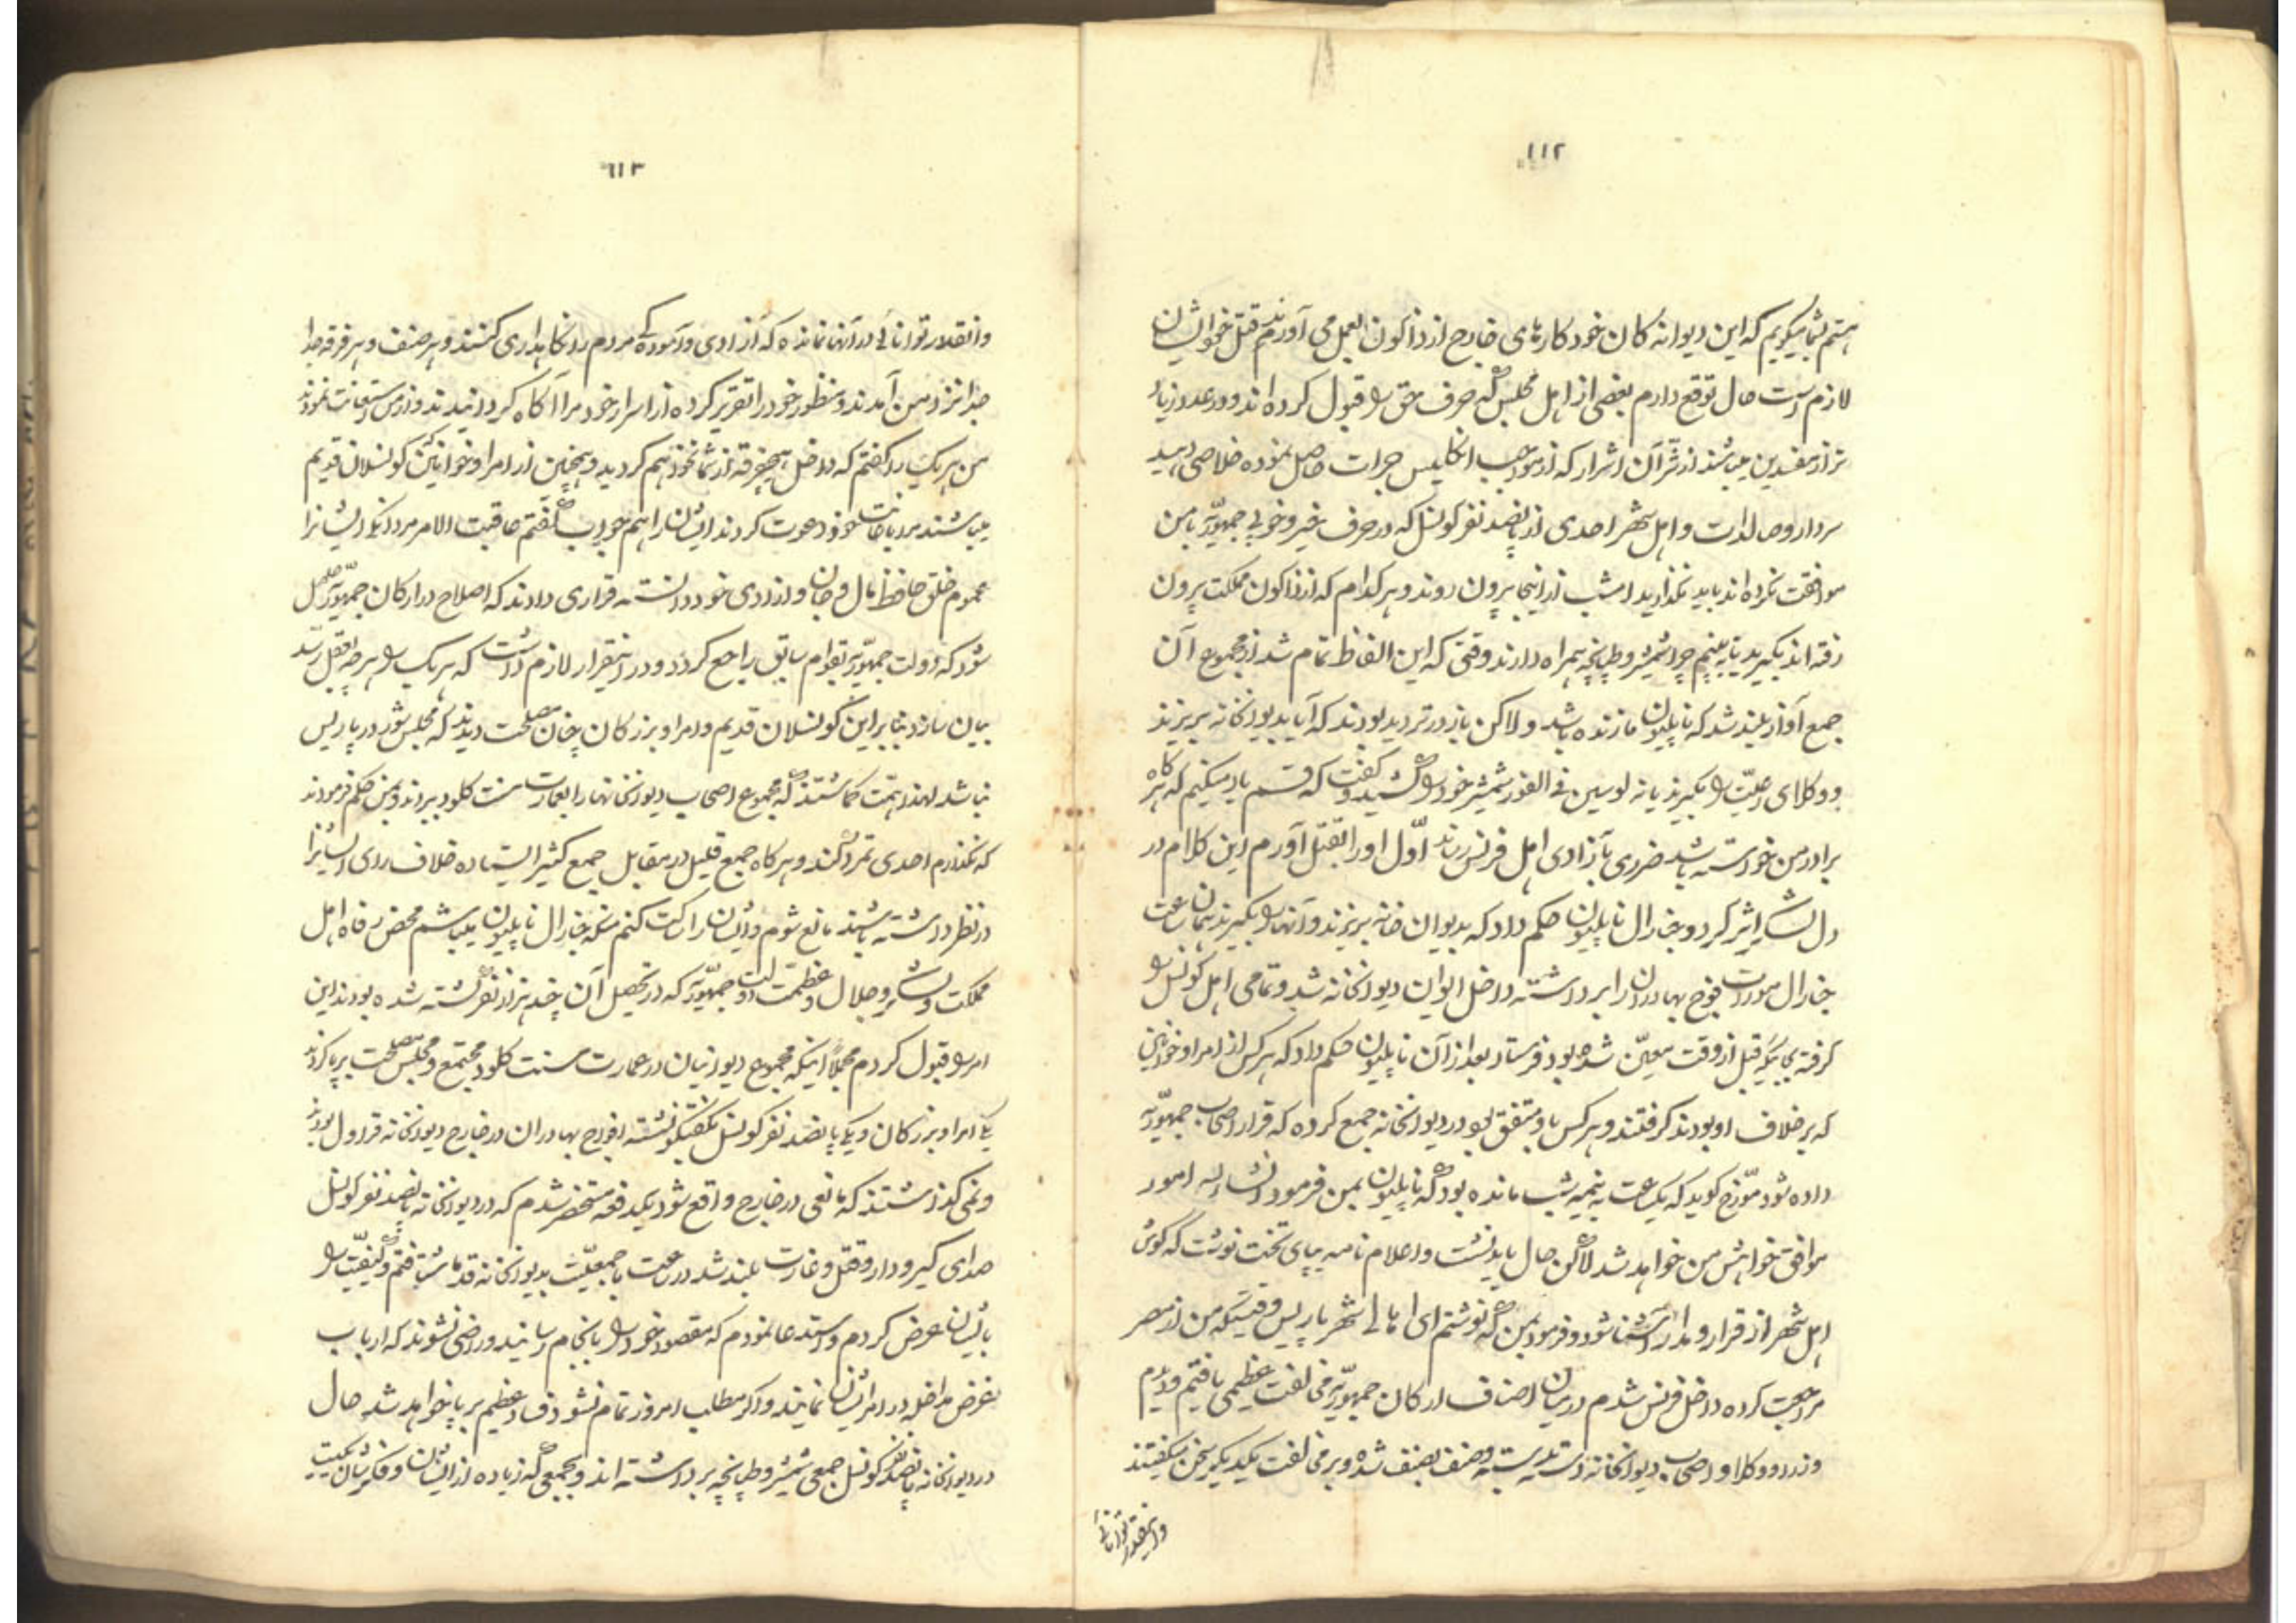 ۱۱۲
هستم بشما میگویم که این دیوانه کان خود کارهای خارج از ذاکون بعمل می آورند قتل خود ایشان
لازم است حال توقع دارم بعضی از اهل مجلس که حرف حق را قبول کرده اند و در عدد زیاد
تر از مفسدین میباشند از شر آن اشرار که از مواجب انکلیس جرات حاصل نموده خلاصی دهید
سردار و صالدات و اهل شهر احدی از پانصد نفر کونسل که در حرف خیر و خوبی جمهوریه با من
موافقت نکرده اند باید نکذارید امشب از اینجا بیرون روند و هر کدام که از ذاکون مملکت بیرون
رفته اند بگیرید تا به بینیم چرا شمشیر و طپانچه همراه دارند وقتی که این الفاظ تمام شد از مجموع آن
جمع آواز بلند شد که ناپلیون ما زنده باشد و لاکن باز در تردید بودند که آیا بدیوانخانه بریزند
و وکلای رعیت را بگیرند یا نه لوسین فی الفور شمشیر خود را کشید و گفت که قسم یاد میکنم که هر کاه
برادر من خواسته باشد ضرری بآزادی اهل فرنس رساند اول او را بقتل آورم این کلام در
دل لشکر اثر کرد و جنارال ناپلیون حکم داد که بدیوان خانه بریزند و آنها را بگیرند همان ساعت
جنارال مورات فوج بهادران را برداشته داخل ایوان دیوانخانه شد و تمامی اهل کونسل را
گرفته بجائیکه قبل از وقت معین شده بود فرستاد بعد از آن ناپلیون حکم داد که هر کس از امرا و خوانین
که بر خلاف او بودند گرفتند و هر کس با او متفق بود در دیوانخانه جمع کرده که قرار اصحاب جمهوریه
داده شود مورخ گوید که یک ساعت به نیمه شب مانده بود که ناپلیون بمن فرمود انشاء الله امور
موافق خواهش من خواهد شد لاکن حال باید نشست و اعلام نامه بپای تخت نوشت که گوش
اهل شهر از قرار و مدار آشنا شود و فرمود بمن که نوشتم ای اهالی شهر پاریس وقتیکه من از مصر
مراجعت کرده داخل فرنس شدم در میان اصناف ارکان جمهوریه مخالفت عظیمی یافتم و دیدم
وزرا و وکلا و اصحاب دیوانخانه دسته بدسته و صنف بصنف شده و بر مخالفت یکدیگر سخن میگفتند
و اینقدر توانائی
۱۱۳
و اینقدر توانائی در آنها نمانده که آزادی و آسوده کی مردم را نکاهداری کنند و هر صنف و هر فرقه جدا
جدا نزد من آمدند و منظور خود را تقریر کرده از اسرار خود مرا آکاه کردانیدند و از من استعانت نمودند
من هر یک را گفتم که داخل هیچ فرقه از شما نخواهم کردید و همچنین از امرا و خوانین که کونسلان قدیم
میباشند مرا باعانت خود دعوت کردند ایشان را هم جواب گفتم عاقبت الامر مردانیکه ایشانرا
عموم خلق حافظ مال و جان و ازادی خود دانسته قراری دادند که اصلاح در ارکان جمهوریه حاصل
شود که دولت جمهوریه بقوام سابق راجع کردد و در اینقرار لازم دانست که هر یک را هر چه بعقل رسد
بیان سازد بنا بر این کونسلان قدیم و امرا و بزرکان چنان مصلحت دیدند که مجلس شور در پاریس
نباشد لهذا همت کماشتند که مجموع اصحاب دیوانخانها را بعمارت سنت کلود برند و بمن حکم فرمودند
که نکذارم احدی تمرد کند و هر کاه جمع قلیل در مقابل جمع کثیر ایستاده خلاف رای ایشانرا
در نظر داشته باشند مانع شوم و ایشان را ساکت کنم منکه جنارال ناپلیون میباشم محض رفاه اهل
مملکت و لشکر و جلال و عظمت دولت جمهوریه که در تحصیل آن چند هزار نفر کشته شده بودند این
امر را قبول کردم مجملاً اینکه مجموع دیوانیان در عمارت سنت کلود مجتمع و مجلس مصلحت برپا کردند
یکی امرا و بزرکان و یکی پانصد نفر کونسل بگفتگو نشسته افواج بهادران در خارج دیوانخانه قراول بودند
و نمی کذاشتند که مانعی در خارج واقع شود یکدفعه مستحضر شدم که در دیوانخانه پانصد نفر کونسل
صدای کیر و دار و قتل و غارت بلند شد در ساعت با جمعیت بدیوانخانه قدما شتافتم و کیفیت را
بایشان عرض کردم و استدعا نمودم که مقصود خود را بانجام رسانند و راضی نشوند که ارباب
غرض مداخله در امر ایشان نمایند و اکر مطلب امروز تمام نشود فساد عظیم برپا خواهد شد حال
در دیوانخانه پانصد نفر کونسل جمعی شمشیر و طپانچه برداشته اند و بجمعی که زیاده از ایشان و فکرشان